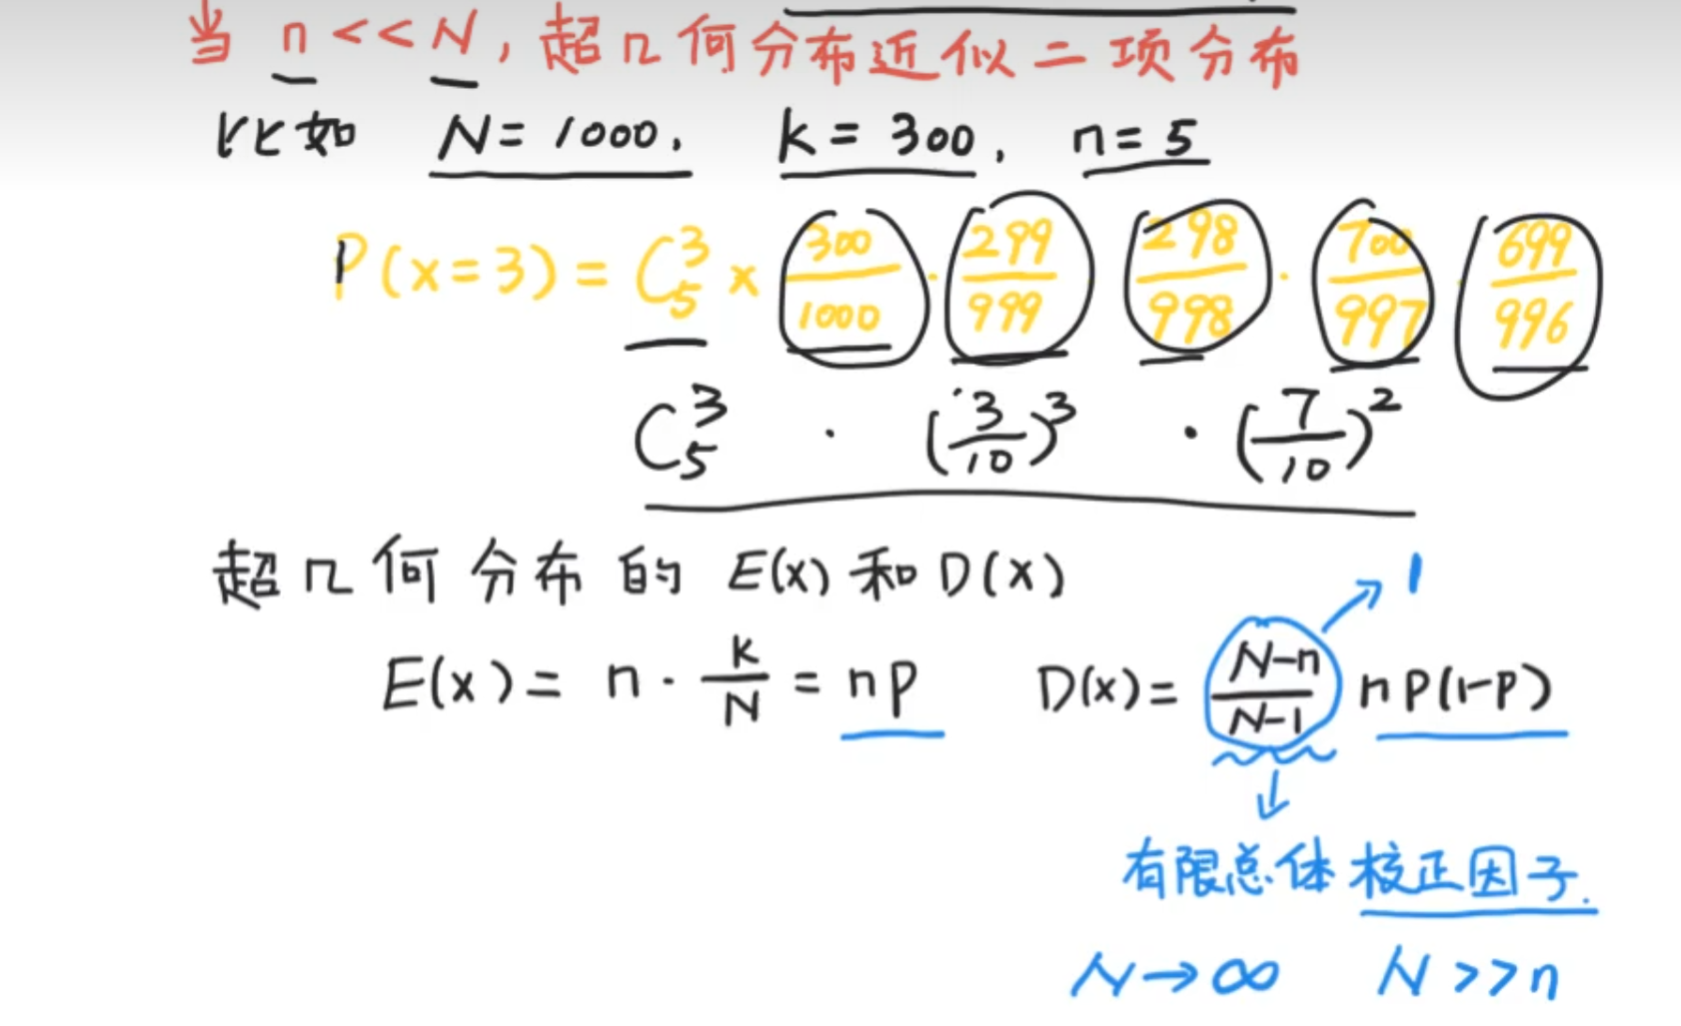 当 n << N, 超几何分布近似二项分布
比如 N = 1000, k = 300, n = 5
P(x=3) = C₅³ × 300/1000 · 299/999 · 298/998 · 700/997 · 699/996
C₅³ · (3/10)³ · (7/10)²
超几何分布的 E(x) 和 D(x)
1
E(x) = n · k/N = np D(x) = (N-n)/(N-1) np(1-p)
有限总体校正因子.
N → ∞ N >> n